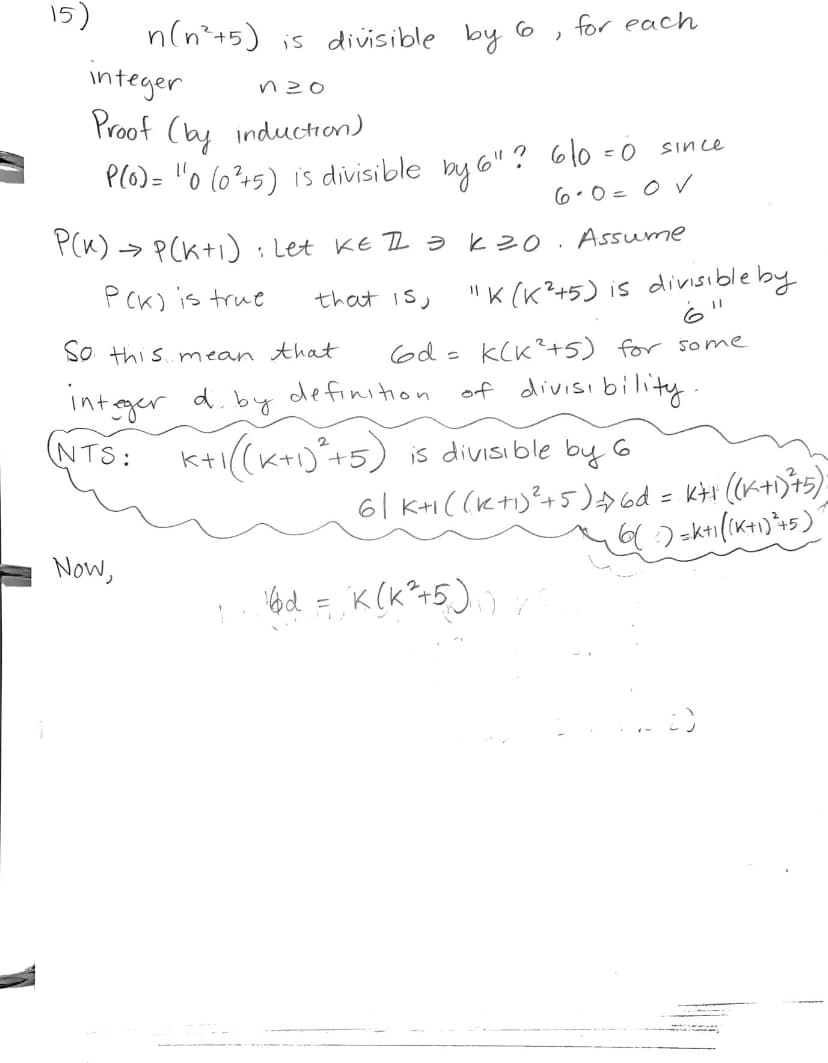 15)
n(n²+5) is divisible by 6, for each
integer n≥0
Proof (by induction)
P(0) = "0(0²+5) is divisible by 6"? 6|0 = 0 since
6·0 = 0 ✓
P(k) → P(k+1) : Let k∈ℤ ∋ k≥0. Assume
P(k) is true that is, "k(k²+5) is divisible by
6"
So this mean that 6d = k(k²+5) for some
integer d by definition of divisibility.
NTS: k+1((k+1)²+5) is divisible by 6
6| k+1((k+1)²+5) → 6d = k+1((k+1)²+5)
6( ) = k+1((k+1)²+5)
Now,
6d = k(k²+5)